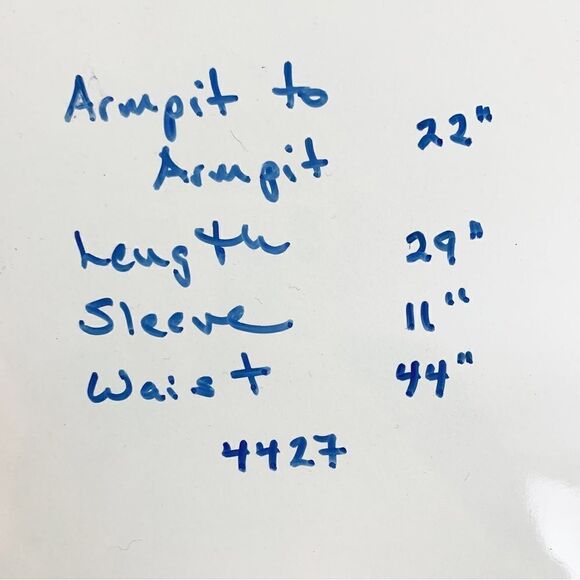 Armpit to
Armpit 22"
Length 29"
Sleeve 11"
Waist 44"
4427